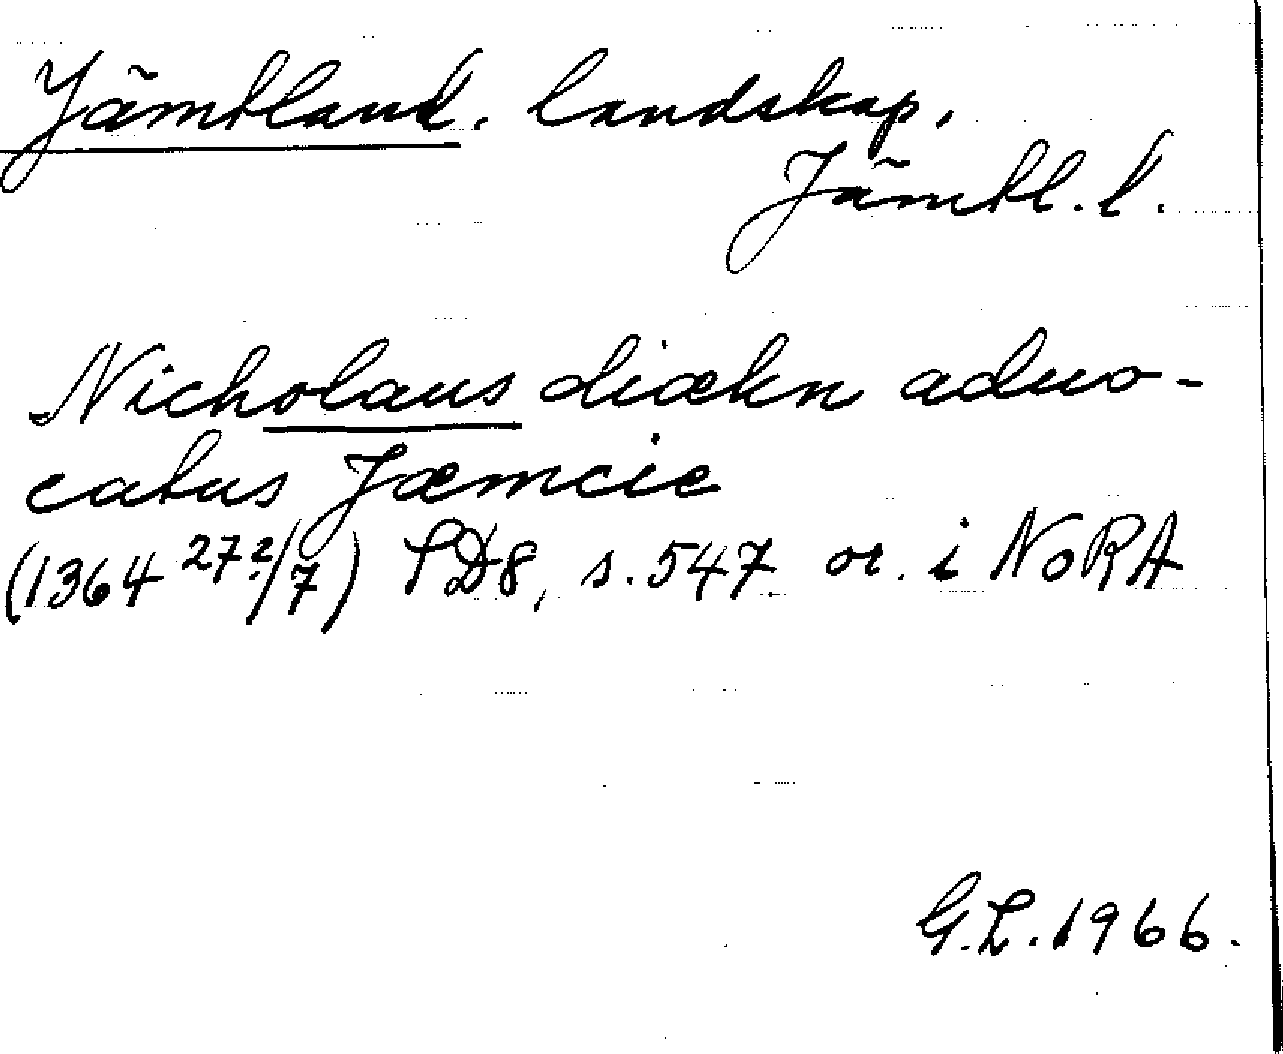 Jämtland. landskap.
Jämtl. l.
Nicholaus diækn aduo-
catus Jæmcie
(1364 27?/7) SD8, s. 547 or. i NoRA
G.L. 1966.